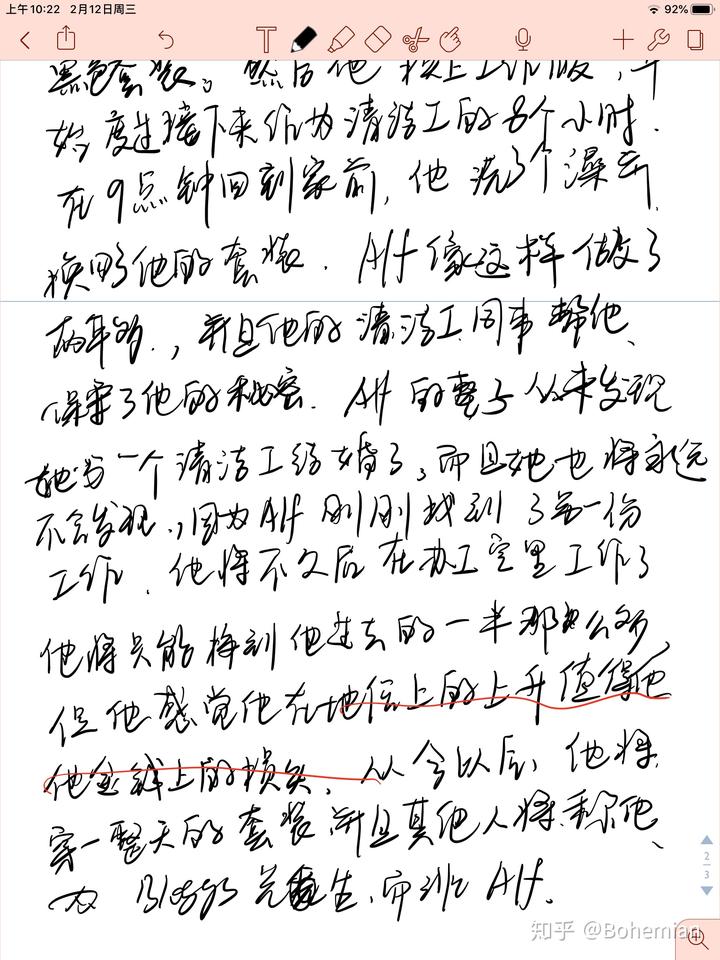 上午10:22 2月12日周三
92%
黑色套装。然后他换上工作服，开
始度过接下来作为清洁工的8个小时.
在9点钟回到家前，他洗了个澡并
换回了他的套装. Alf像这样做了
两年多.，并且他的清洁工同事帮他
保守了他的秘密. Alf的妻子从来发现
她与一个清洁工结婚了，而且她也将永远
不会发现.，因为Alf刚刚找到了另一份
工作. 他将不久后在办工室里工作了
他将只能挣到他过去的一半那么多，
但他感觉他在地位上的上升值得他
他金钱上的损失. 从今以后，他将
穿一整天的套装，并且其他人将称他
为 Bloggs 先生，而非 Alf.
2
3
知乎 @Bohemian